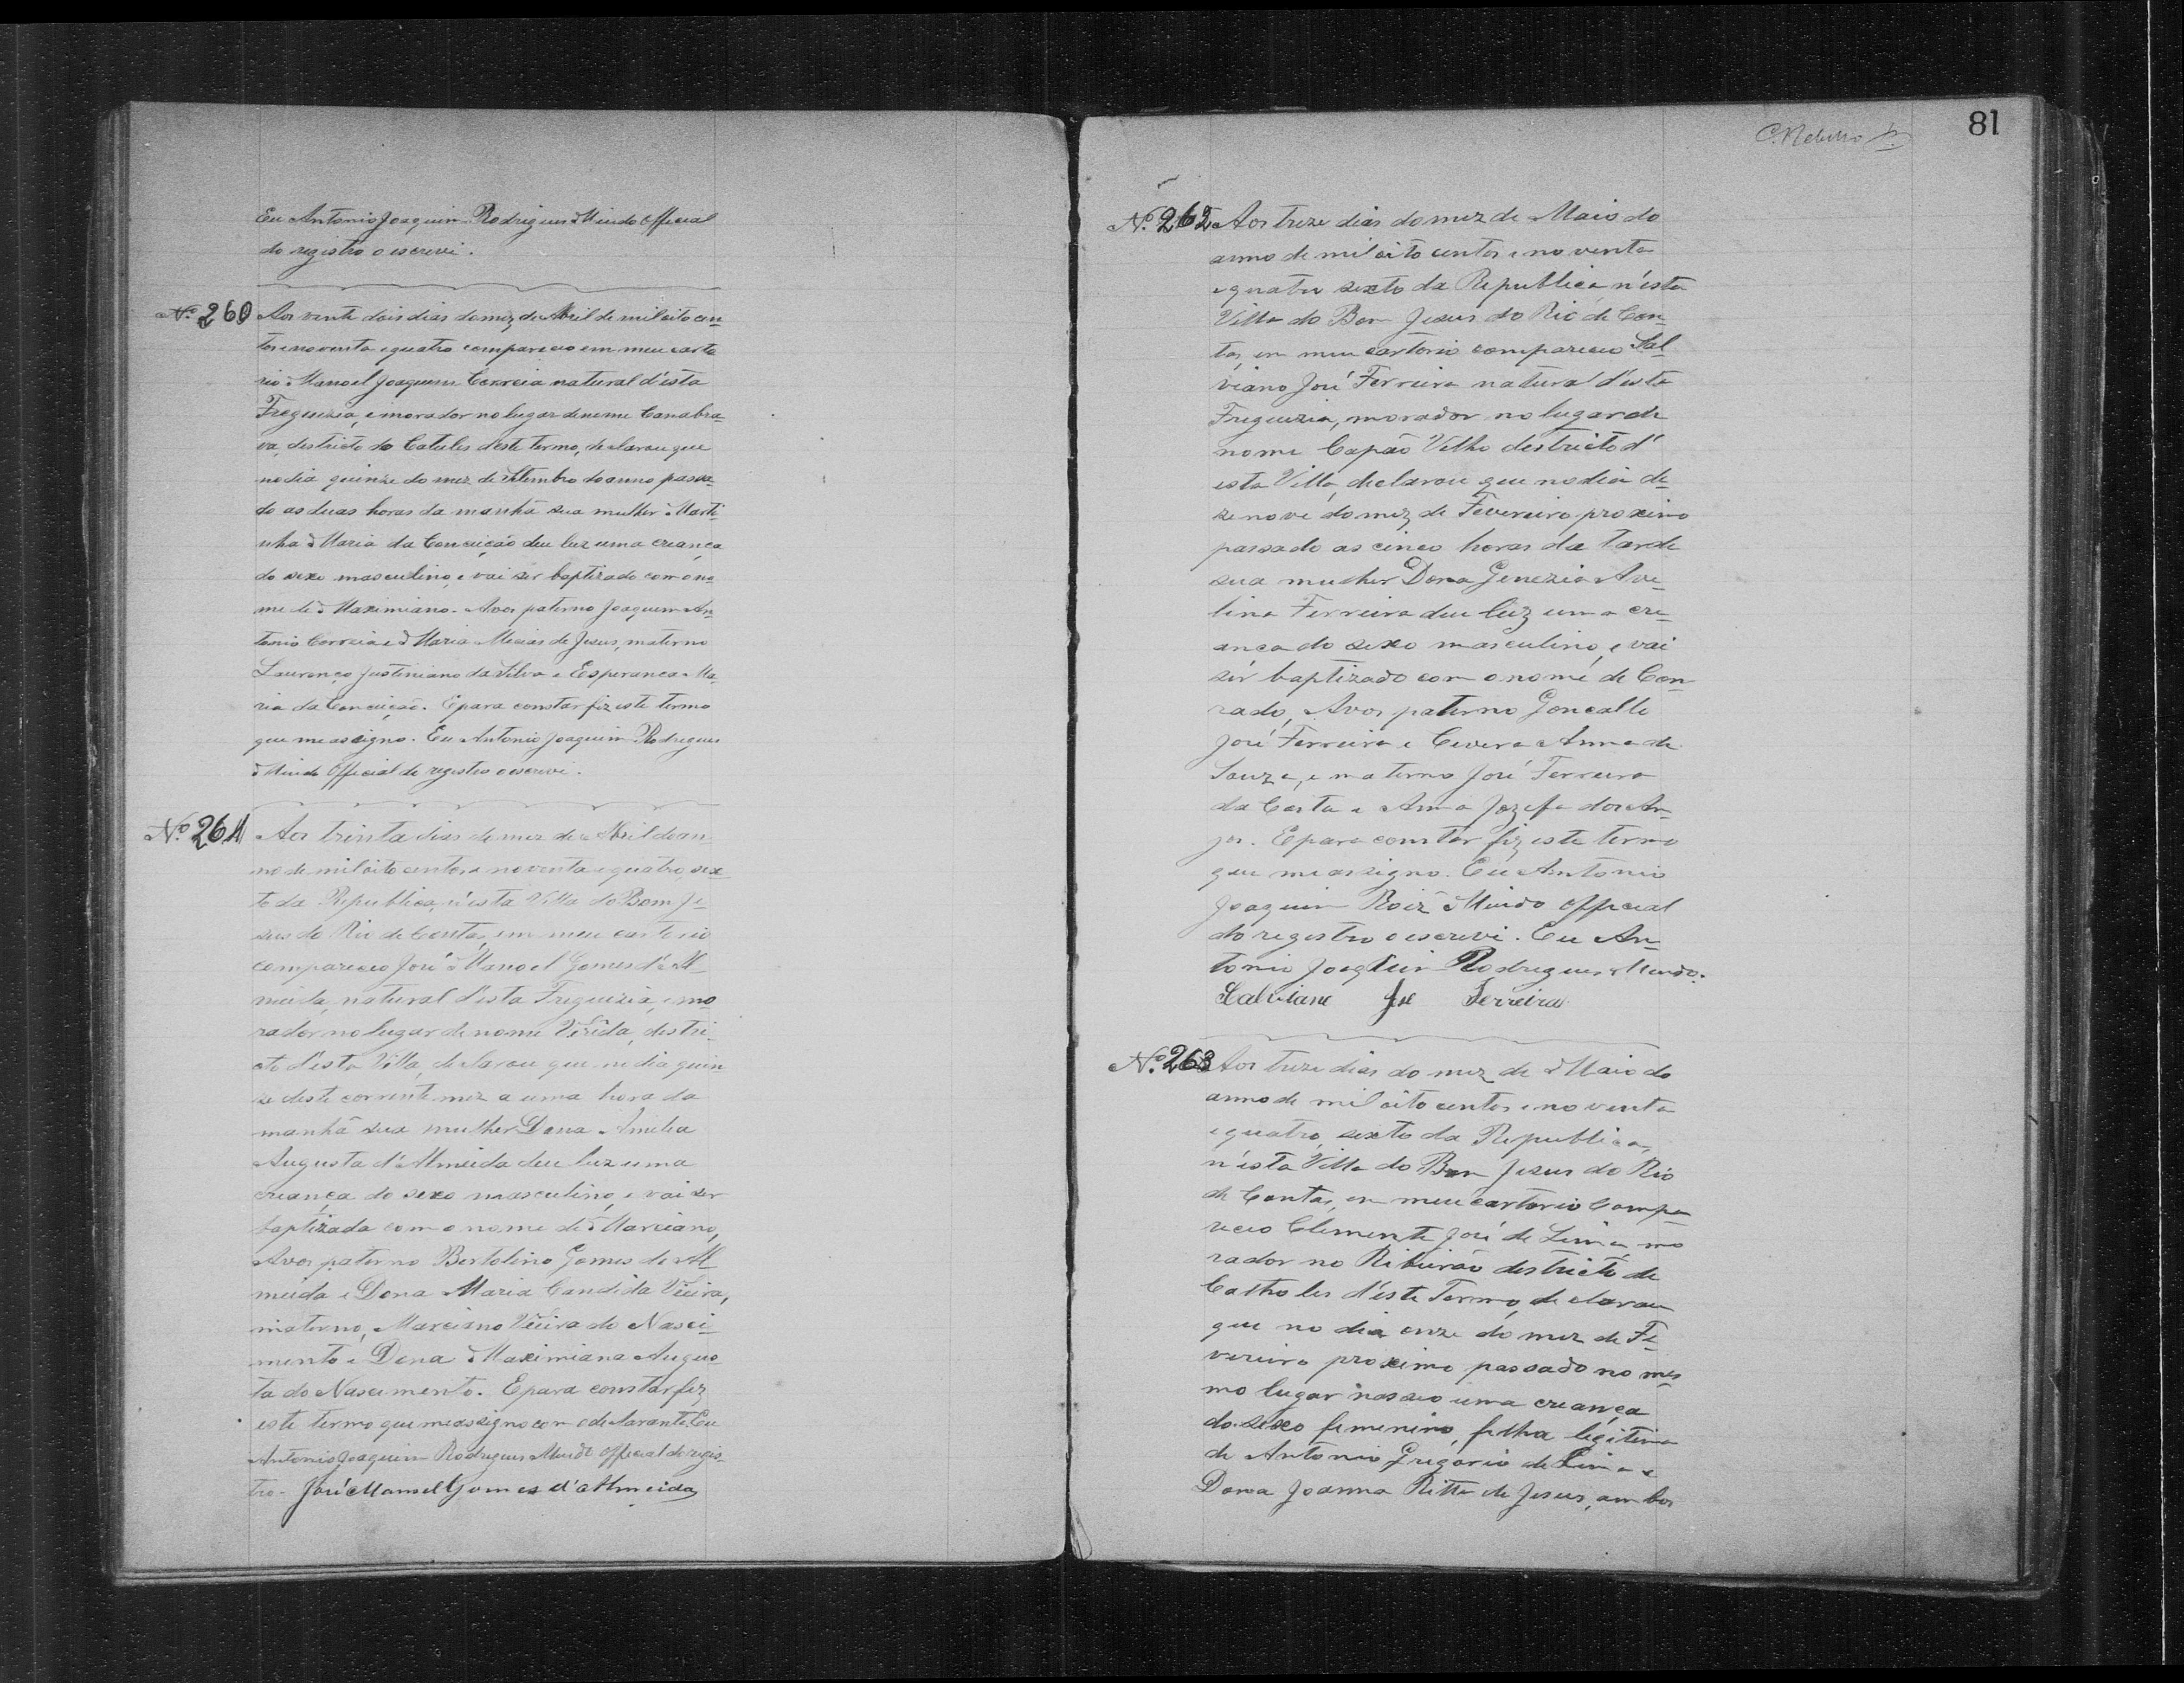 Eu Antonio Joaquim Rodrigues Official
do registro o escrevi.
Nº 260 Aos vente dois dias do mez de Abril de mil oito cen-
tos e noventa e quatro compareceo em meu carto
rio Manoel Joaquim Correia natural d'esta
Freguezia, e morador no lugar de nome Canabra-
va, destricto do Catules deste termo, declarou que
no dia quinze do mez de Setembro do anno passa-
do as duas horas da manhã sua mulher Marti-
nha Maria da Conceição deu luz uma creança
do sexo masculino, e vai ser baptizado com o no-
me de Maximiano. Avos paterno Joaquim An-
tonio Correia e Maria Mecias de Jesus, materno
Laurenço Justiniano da Silva e Esperanca Ma-
ria da Conceição. E para constar fiz este termo
que me assigno. Eu Antonio Joaquim Rodrigues
Official de registro o escrevi.
Nº 261 Aos trinta dias do mez de Abril do an
no de mil oito centos e noventa e quatro, sex
to da Republica, n'esta Villa do Bom Je-
sus do Rio de Contas, em meu cartorio
compareceo José Manoel Gomes d'Al-
meida, natural d'esta Freguezia, e mo
rador no lugar de nome destri-
cto d'esta Villa, declarou que no dia quin
ze deste corrente mez a uma hora da
manhã sua mulher Dona Amelia
Augusta d'Almeida deu luz uma
creança do sexo masculino, e vai ser
baptizada com o nome de Marciano,
Avos paterno Bertolino Gomes de Al
meida e Dona Maria Candida Vieira,
materno, Marciano Vieira do Nasci-
mento e Dona Maximiana Augus
ta do Nascimento. E para constar fiz
este termo que me assigno com o declarante. Eu
Antonio Joaquim Rodrigues Official do regis-
tro. José Manoel Gomes d'Almeida
81
Nº 262 Aos treze dias do mez de Maio do
anno de mil oito centos e noventa
e quatro sexto da Republica n'esta
Villa do Bom Jesus do Rio de Con-
tas, em meu cartorio compareceu Sal-
viano José Ferreira natural d'esta
Freguezia, morador no lugar de
nome Capão Velho destricto d'
esta Villa, declarou que no dia de-
zenove do mez de Fevereiro proximo
passado as cinco horas da tarde
sua mulher Dona Genezia Ave-
lina Ferreira deu luz uma cre-
anca do sexo masculino, e vai
ser baptizado com o nome de Con-
rado, Avos paterno Goncallo
José Ferreira e Anna de
Souza, e materno José Ferreira
da Costa e Anna Jozefa dos An-
jos. E para constar fiz este termo
que me assigno. Eu Antonio
Joaquim Roiz Official
do registro o escrevi. Eu An-
tonio Joaquim Rodrigues
Salviano Jse Ferreira
Nº 263 Aos treze dias do mez de Maio do
anno de mil oito centos e noventa
e quatro, sexto da Republica,
n'esta Villa do Bom Jesus do Rio
de Contas, em meu cartorio compa-
receo Clemente José de Lima, mo
rador no Ribeirão destricto de
Catholes d'este Termo, declarou
que no dia onze do mez de Fe
vereiro proximo passado no mes
mo lugar nasceo uma creança
do sexo femenino, filha legitima
de Antonio Gregorio de Lima e
Dona Joanna Ritta de Jesus, ambos